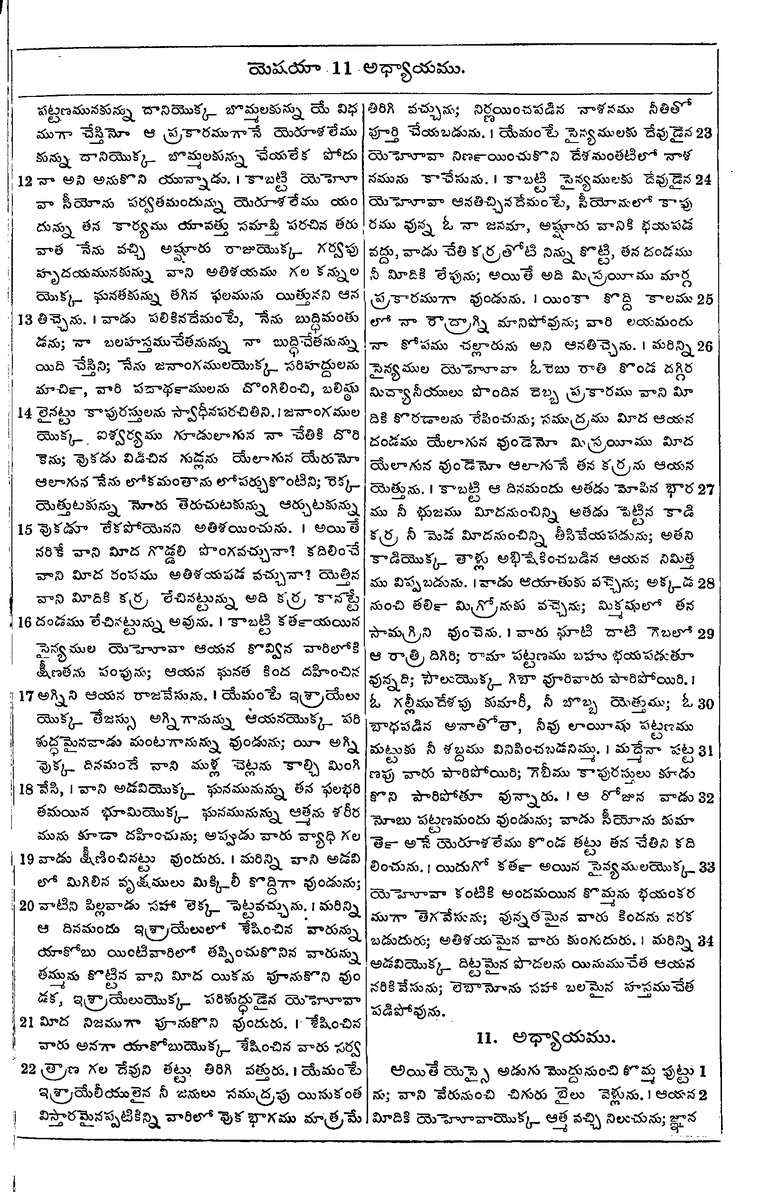 యెషయా 11 అధ్యాయము.
పట్టణమునకున్ను దానియొక్క బొమ్మలకున్ను యే విధ
ముగా చేస్తినో ఆ ప్రకారముగానే యెరూశలేము
కున్ను దానియొక్క బొమ్మలకున్ను చేయలేక పోదు
12 నా అని అనుకొని యున్నాడు. । కాబట్టి యెహో
వా సీయోను పర్వతమందున్ను యెరూశలేము యం
దున్ను తన కార్యము యావత్తు సమాప్తి పరచిన తరు
వాత నేను వచ్చి అష్షూరు రాజుయొక్క గర్వపు
హృదయమునకున్ను వాని అతిశయము గల కన్నుల
యొక్క ఘనతకున్ను తగిన ఫలమును యిత్తునని ఆన
13 తిచ్చెను. । వాడు పలికినదేమంటే, నేను బుద్ధిమంతు
డను; నా బలహస్తముచేతనున్ను నా బుద్ధిచేతనున్ను
యిది చేస్తిని; నేను జనాంగములయొక్క సరిహద్దులను
మార్చి, వారి పదార్థములను దొంగిలించి, బలిష్ఠు
14 లైనట్టు కాపురస్తులను స్వాధీనపరచితిని. । జనాంగముల
యొక్క ఐశ్వర్యము గూడులాగున నా చేతికి దొరి
కెను; వొకడు విడిచిన గుడ్లను యేలాగున యేరునో
ఆలాగున నేను లోకమంతాను లోపర్చుకొంటిని; రెక్క
యెత్తుటకున్ను నోరు తెరుచుటకున్ను ఆర్చుటకున్ను
15 వొకడూ లేకపోయెనని అతిశయించును. । అయితే
నరికే వాని మీద గొడ్డలి పొంగవచ్చునా? కదిలించే
వాని మీద రంపము అతిశయపడ వచ్చునా? యెత్తిన
వాని మీదికి కర్ర లేచినట్టున్ను అది కర్ర కానట్టే
16 దండము లేచినట్టున్ను అవును. । కాబట్టి కర్తయయిన
సైన్యముల యెహోవా ఆయన కొవ్విన వారిలోకి
క్షీణతను పంపును; ఆయన ఘనత కింద దహించిన
17 అగ్నిని ఆయన రాజవేసును. । యేమంటే ఇశ్రాయేలు
యొక్క తేజస్సు అగ్నిగానున్ను ఆయనయొక్క పరి
శుద్ధమైనవాడు మంటగానున్ను వుండును; యీ అగ్ని
వొక్క దినమందే వాని ముళ్ల చెట్లను కాల్చి మింగి
18 వేసి, । వాని అడవియొక్క ఘనమునున్ను తన ఫలభరి
తమయిన భూమియొక్క ఘనమునున్ను ఆత్మను శరీర
మును కూడా దహించును; అప్పుడు వారు వ్యాధి గల
19 వాడు క్షీణించినట్టు వుందురు. । మరిన్ని వాని అడవి
లో మిగిలిన వృక్షములు మిక్కిలీ కొద్దిగా వుండును;
20 వాటిని పిల్లవాడు సహా లెక్క పెట్టవచ్చును. । మరిన్ని
ఆ దినమందు ఇశ్రాయేలులో శేషించిన వారున్ను
యాకోబు యింటివారిలో తప్పించుకొనిన వారున్ను
తమ్మును కొట్టిన వాని మీద యికను వూనుకొని వుం
డక, ఇశ్రాయేలుయొక్క పరిశుద్ధుడైన యెహోవా
21 మీద నిజముగా వూనుకొని వుందురు. । శేషించిన
వారు అనగా యాకోబుయొక్క శేషించిన వారు సర్వ
22 త్రాణ గల దేవుని తట్టు తిరిగి వత్తురు. । యేమంటే
ఇశ్రాయేలీయులైన నీ జనులు సముద్రపు యినుకంత
విస్తారమైనప్పటికిన్ని వారిలో వొక భాగము మాత్రమే
తిరిగి వచ్చును; నిర్ణయించపడిన నాశనము నీతితో
పూర్తి చేయబడును. । యేమంటే సైన్యములకు దేవుడైన 23
యెహోవా నిర్ణయించుకొని దేశమంతటిలో నాశ
నమును కాచేసును. । కాబట్టి సైన్యములకు దేవుడైన 24
యెహోవా ఆనతిచ్చినదేమంటే, సీయోనులో కాపు
రము వున్న ఓ నా జనమా, అష్షూరు వానికి భయపడ
వద్దు, వాడు చేతి కర్రతోటి నిన్ను కొట్టి, తన దండము
నీ మీదికి లేపును; అయితే అది మిస్రయీము మార్గ
ప్రకారముగా వుండును. । యింకా కొద్ది కాలము 25
లో నా రౌద్రాగ్ని మానిపోవును; వారి లయమందు
నా కోపము చల్లారును అని ఆనతిచ్చెను. । మరిన్ని 26
సైన్యముల యెహోవా ఓరెబు రాతి కొండ దగ్గిర
మిద్యానీయులు పొందిన దెబ్బ ప్రకారము వాని మీ
దికి కొరడాలను రేపించును; సముద్రము మీద ఆయన
దండము యేలాగున వుండెనో మిస్రయీము మీద
యేలాగున వుండెనో ఆలాగునే తన కర్రను ఆయన
యెత్తును. । కాబట్టి ఆ దినమందు అతడు మోపిన భార 27
ము నీ భుజము మీదనుంచిన్ని అతడు పెట్టిన కాడి
కర్ర నీ మెడ మీదనుంచిన్ని తీసివేయపడును; అతని
కాడియొక్క తాళ్లు అభిషేకించబడిన ఆయన నిమిత్త
ము విప్పబడును. । వాడు ఆయాతుకు వచ్చెను; అక్కడ 28
నుంచి తర్లి మిగ్రోనుకు వచ్చెను; మిక్మషులో తన
సామగ్రిని వుంచెను. । వారు ఘాటి దాటి గెబలో 29
ఆ రాత్రి దిగిరి; రామా పట్టణము బహు భయపడుతూ
వున్నది; సౌలుయొక్క గిబా వూరివారు పారిపోయిరి. ।
ఓ గల్లీముదేశపు కుమారీ, నీ బొబ్బ యెత్తుము; ఓ 30
బాధపడిన అనాతోతా, నీవు లాయిషు పట్టణము
మట్టుకు నీ శబ్దము వినిపించబడనిమ్ము. । మద్మేనా పట్ట 31
ణపు వారు పారిపోయిరి; గెబీము కాపురస్తులు కూడు
కొని పారిపోతూ వున్నారు. । ఆ రోజున వాడు 32
నోబు పట్టణమందు వుండును; వాడు సీయోను కుమా
ర్తె అనే యెరూశలేము కొండ తట్టు తన చేతిని కది
లించును. । యిదుగో కర్త అయిన సైన్యములయొక్క 33
యెహోవా కంటికి అందమయిన కొమ్మను భయంకర
ముగా తెగవేసును; వున్నతమైన వారు కిందను నరక
బడుదురు; అతిశయమైన వారు కుంగుదురు. । మరిన్ని 34
అడవియొక్క దిట్టమైన పొదలను యినుముచేత ఆయన
నరికివేసును; లెబానోను సహా బలమైన హస్తముచేత
పడిపోవును.
11. అధ్యాయము.
అయితే యెస్సై అడుగు మొద్దునుంచి కొమ్మ పుట్టు 1
ను; వాని వేరునుంచి చిగురు బైలు వెళ్లును. । ఆయన 2
మీదికి యెహోవాయొక్క ఆత్మ వచ్చి నిలుచును; జ్ఞాన